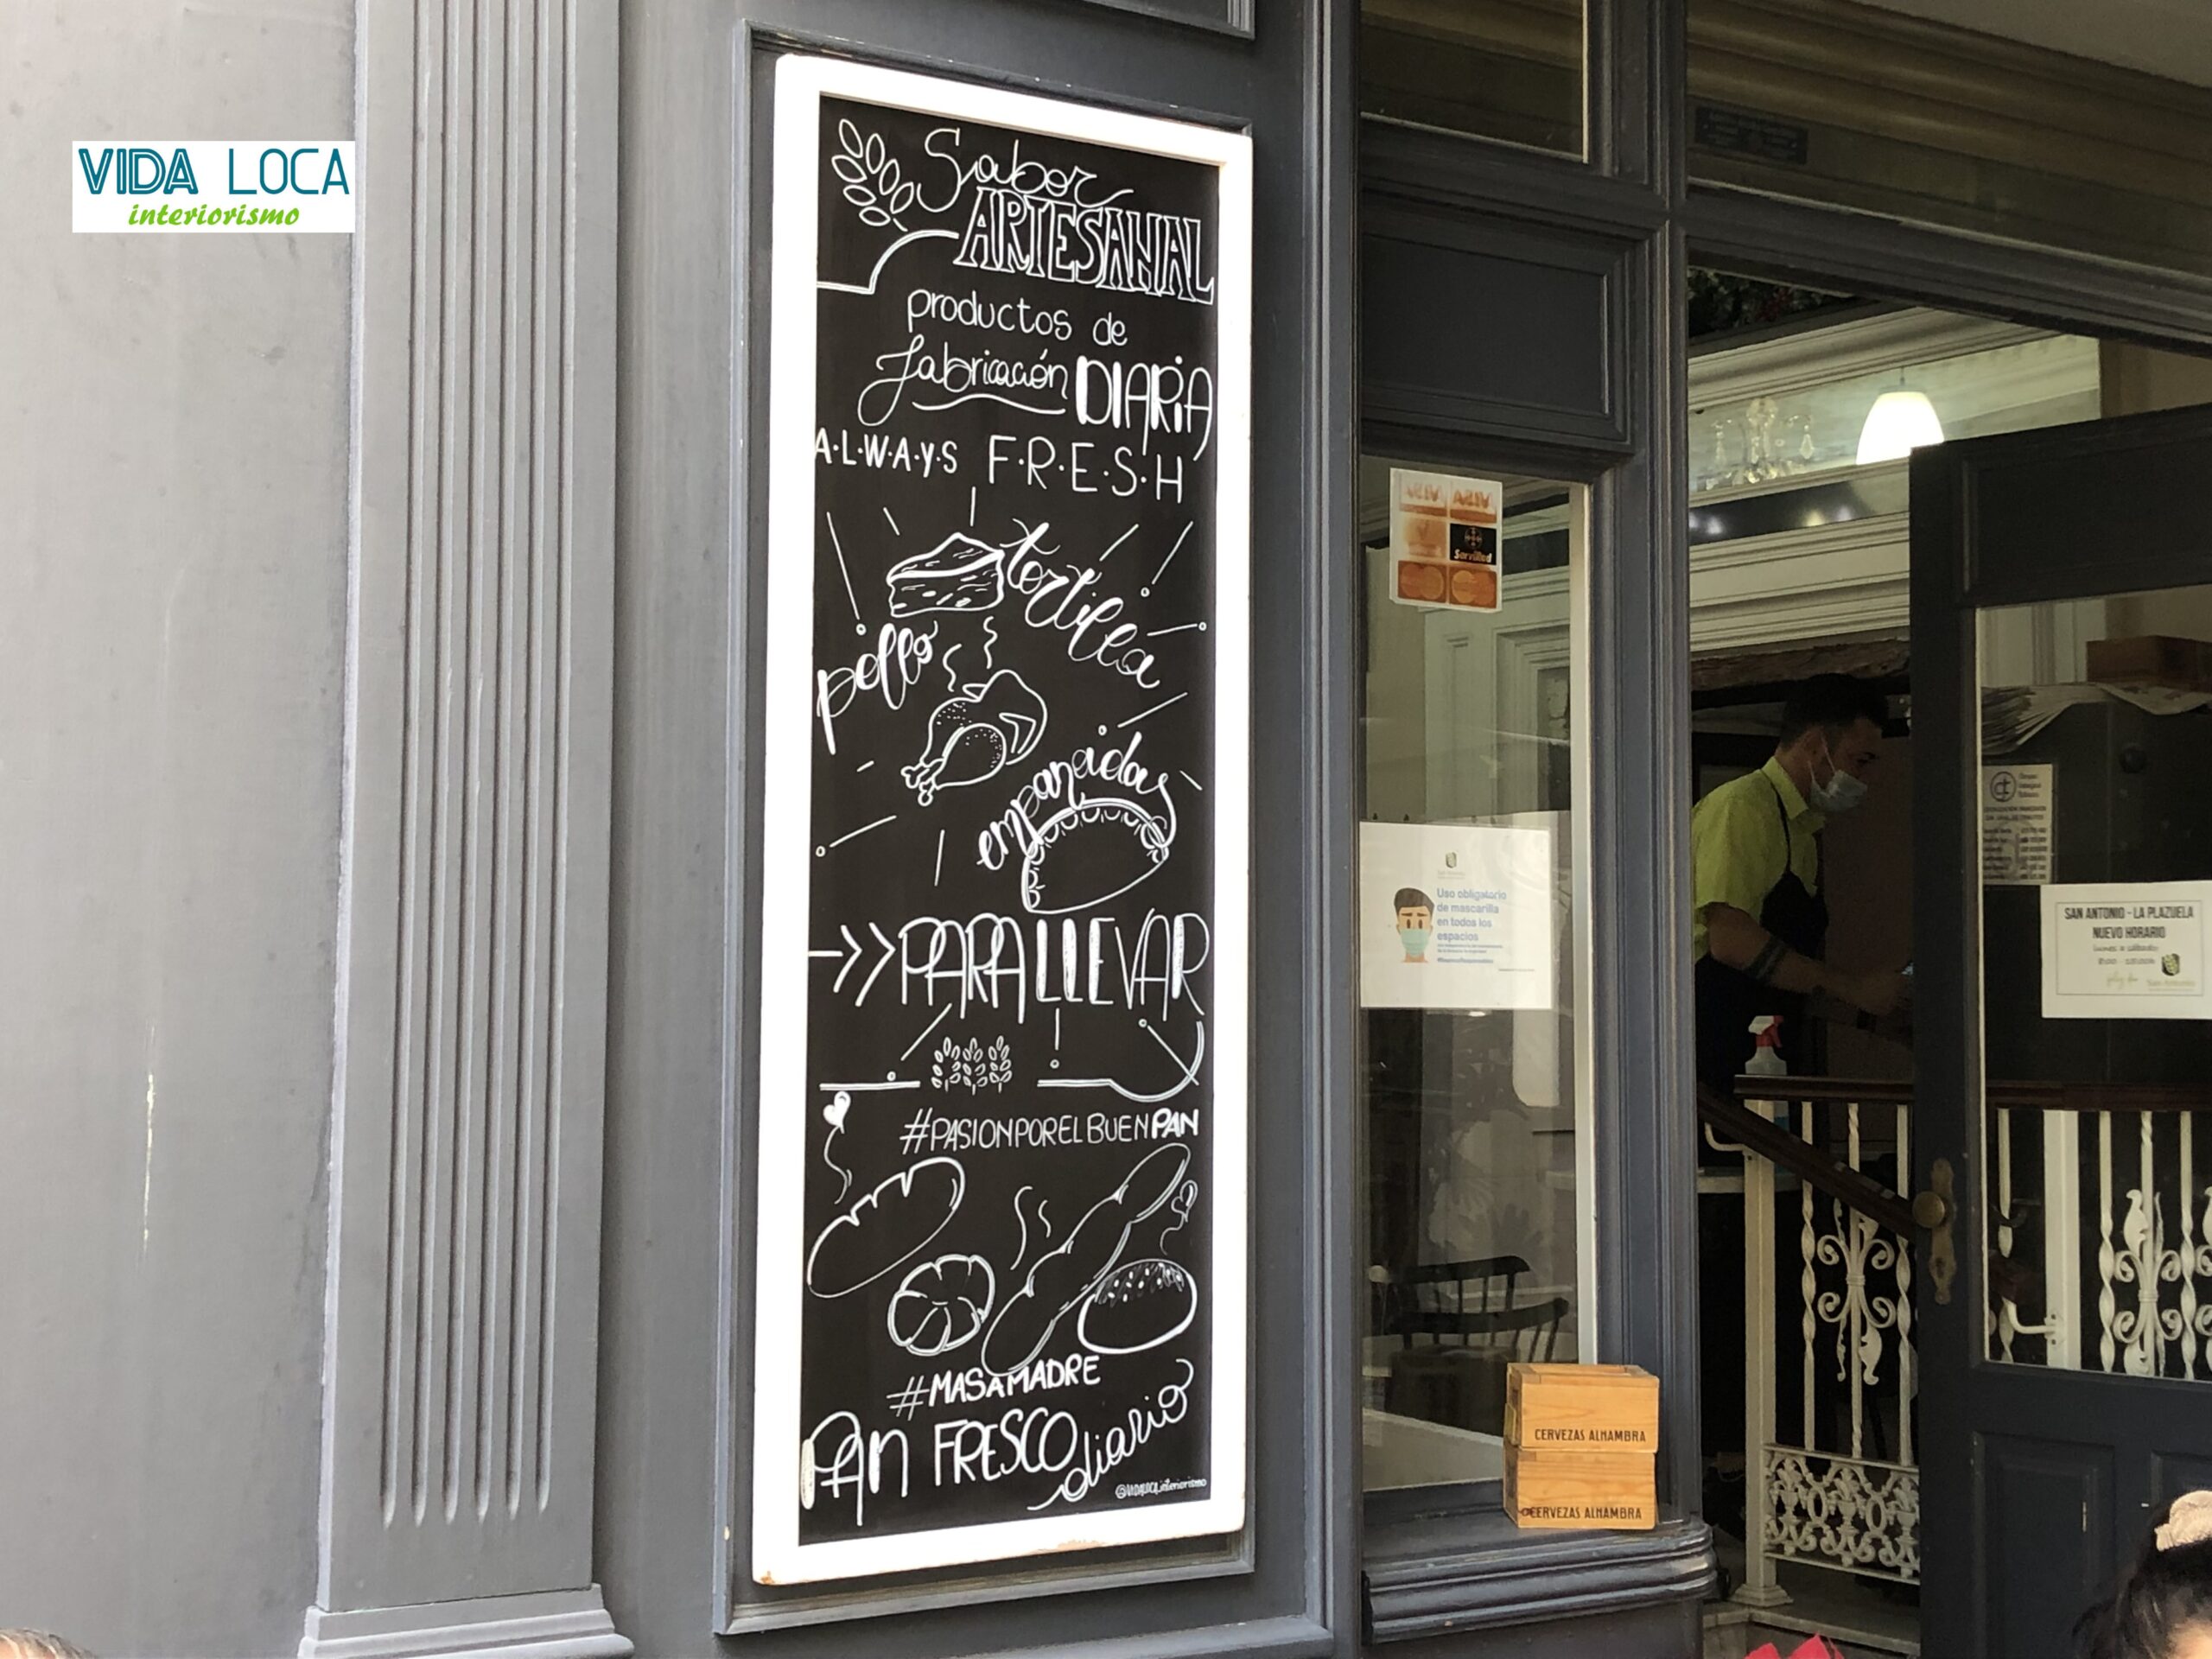 VIDA LOCA
interiorismo
Sabor
ARTESANAL
productos de
fabricación DIARIA
A·L·W·A·Y·S F·R·E·S·H
tortilla
pollo
empanadas
PARA LLEVAR
#PASIONPORELBUENPAN
#MASAMADRE
PAN FRESCO diario
@VIDALOCA.interiorismo
VISA VISA
Servired
Uso obligatorio
de mascarilla
en todos los
espacios
SAN ANTONIO - LA PLAZUELA
NUEVO HORARIO
Lunes a sábado
San Antonio
CERVEZAS ALHAMBRA
CERVEZAS ALHAMBRA